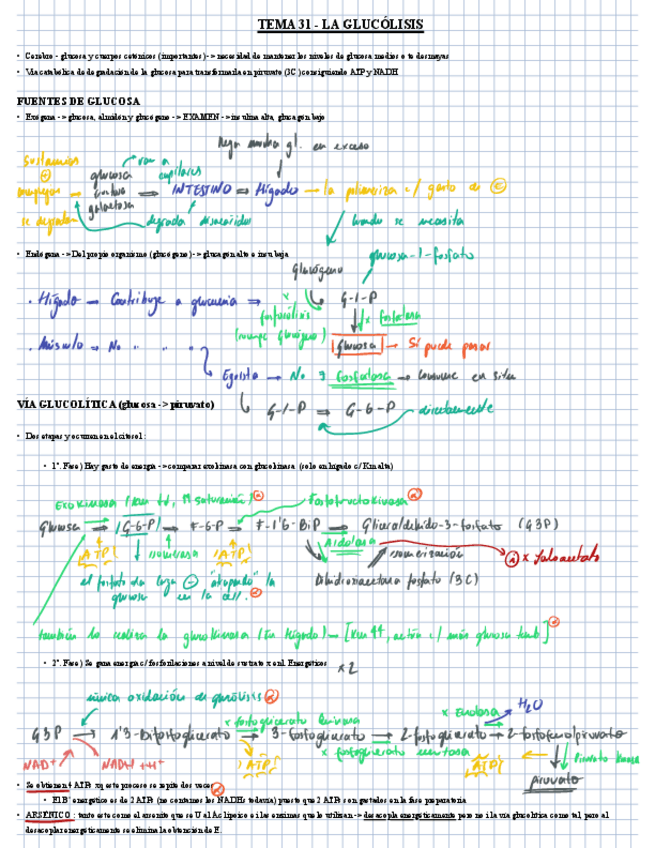 TEMA 31 - LA GLUCÓLISIS
• Cerebro - glucosa y cuerpos cetónicos (importantes) -> necesidad de mantener los niveles de glucosa medios o te desmayas
• Vía catabólica de degradación de la glucosa para transformarla en piruvato (3C) consiguiendo ATP y NADH
FUENTES DE GLUCOSA
• Exógena -> glucosa, almidón y glucógeno -> EXAMEN -> insulina alta, glucagón bajo
llega mucha gl. en exceso
Sustancias
van a
capilares
complejas → glucosa
galactosa
⇒ INTESTINO ⇒ Hígado → la polimeriza c/ gasto de
se degradan
degrada disacáridos
cuando se necesita
• Endógena -> Del propio organismo (glucógeno) -> glucagón alto e insu baja
glucosa-1-fosfato
Glucógeno
• Hígado → Contribuye a glucemia ⇒
x fosforólisis
(rompe glucógeno)
G-1-P
x fosfatasa
Glucosa → Sí puede pasar
• Músculo → No " " "
Egoísta → No ∃ fosfatasa → consume en situ
VÍA GLUCOLÍTICA (glucosa -> piruvato)
G-1-P ⇒ G-6-P directamente
• Dos etapas y ocurren en el citosol:
• 1ª. Fase) Hay gasto de energía -> comparar exokinasa con glucokinasa (solo en hígado c/ Km alta)
Exokinasa (Km ↓↓, ↑↑ saturación)
Fosfofructokinasa
Glucosa ⇒ G-6-P → F-6-P ⇒ F-1'6-BiP ⇒ Gliceraldehído-3-fosfato (G3P)
ATP isomerasa ATP
Aldolasa
isomerización
el fosfato da carga ⊖ "atrapando" la
glucosa en la cél.
Dihidroxiacetona fosfato (3C)
también lo realiza la glucokinasa (en Hígado) → [Km ↑↑, actúa c/ más glucosa]
• 2ª. Fase) Se gana energía c/ fosforilaciones a nivel de sustrato x enl. Energéticos
x2
única oxidación de glucólisis
x fosfoglicerato kinasa
x Enolasa
H₂O
G3P → 1'3-Bifosfoglicerato ⇒ 3-fosfoglicerato ⇒ 2-fosfoglicerato → 2-fosfoenolpiruvato
x fosfoglicerato mutasa
NAD⁺ NADH + H⁺
ATP
ATP
Piruvato kinasa
piruvato
• Se obtienen 4 ATPs xq este proceso se repite dos veces
• El Bº energético es de 2 ATPs (no contamos los NADHs todavía) puesto que 2 ATPs son gastados en la fase preparatoria
• ARSÉNICO: tanto este como el arsenito que se U al Ac lipoico e i las enzimas que lo utilizan -> desacopla energéticamente pero no i la vía glucolítica como tal, pero al
desacoplar energéticamente se elimina la obtención de E.